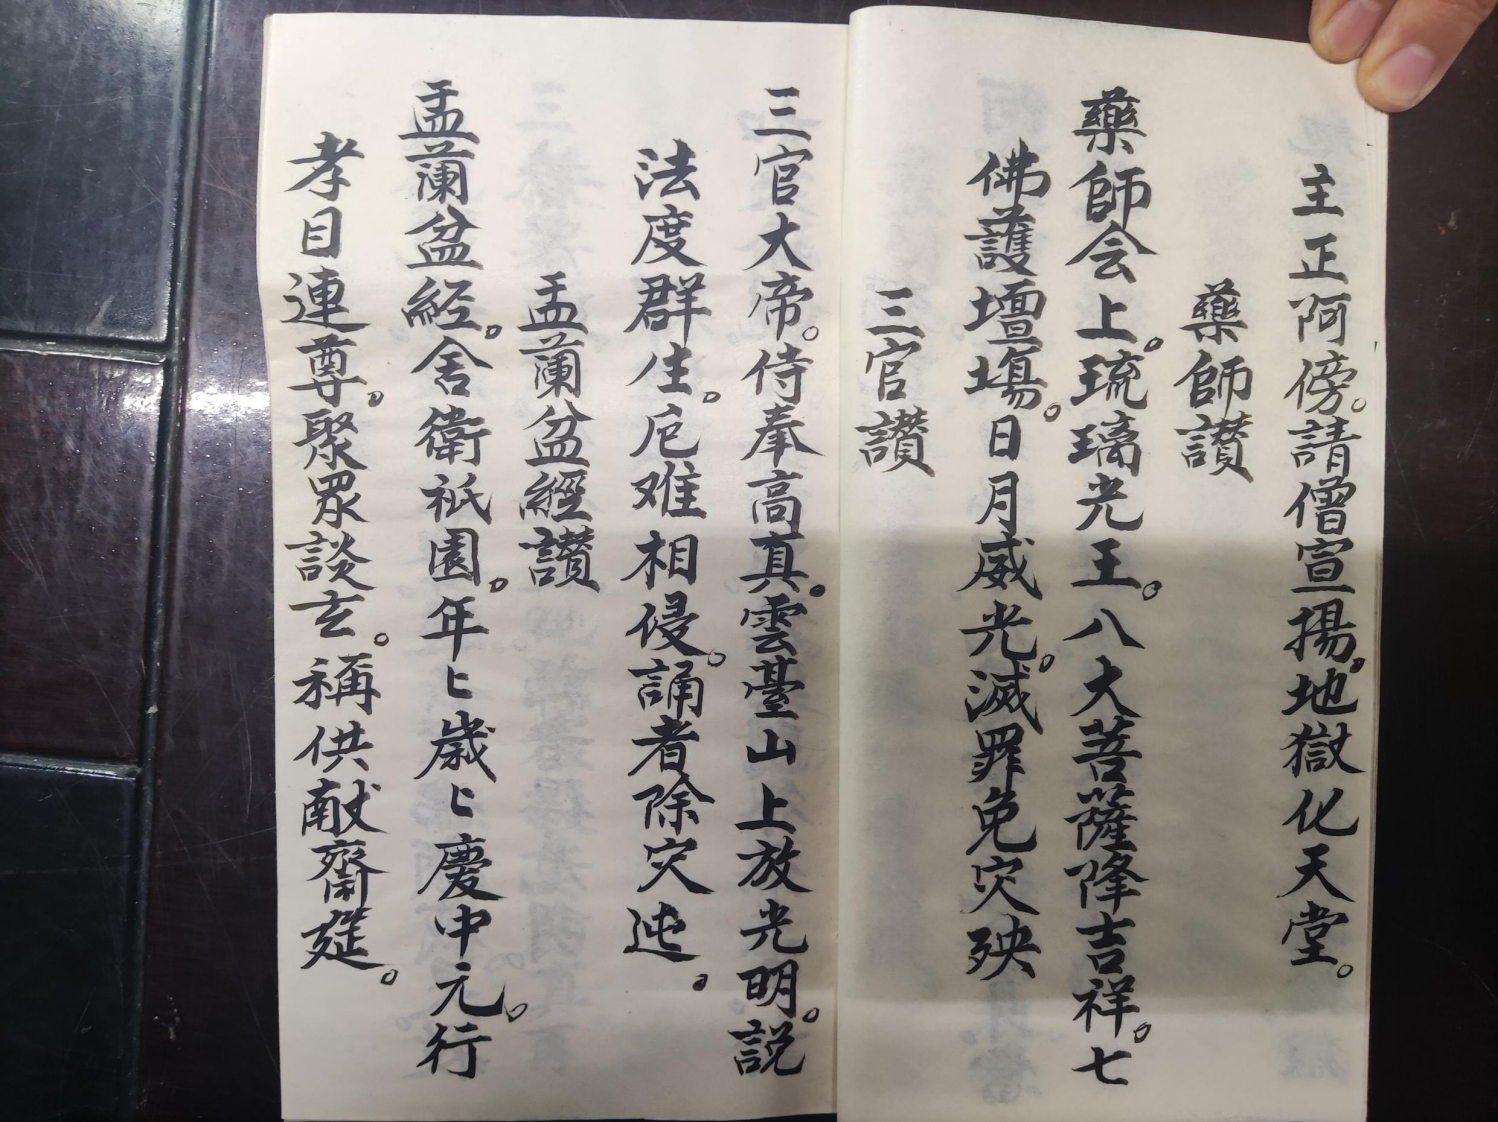 主正阿傍。請僧宣揚。地獄化天堂。
藥師讃
藥師会上。琉璃光王。八大菩薩降吉祥。七
佛護壇場。日月威光。滅罪免灾殃
三官讃
三官大帝。侍奉高真。雲臺山上放光明。説
法度群生。厄难相侵。誦者除灾迍。
盂蘭盆經讃
盂蘭盆經。舍衛祇園。年匕歲匕慶中元。行
孝目連尊。聚眾談玄。稱供献齋筵。